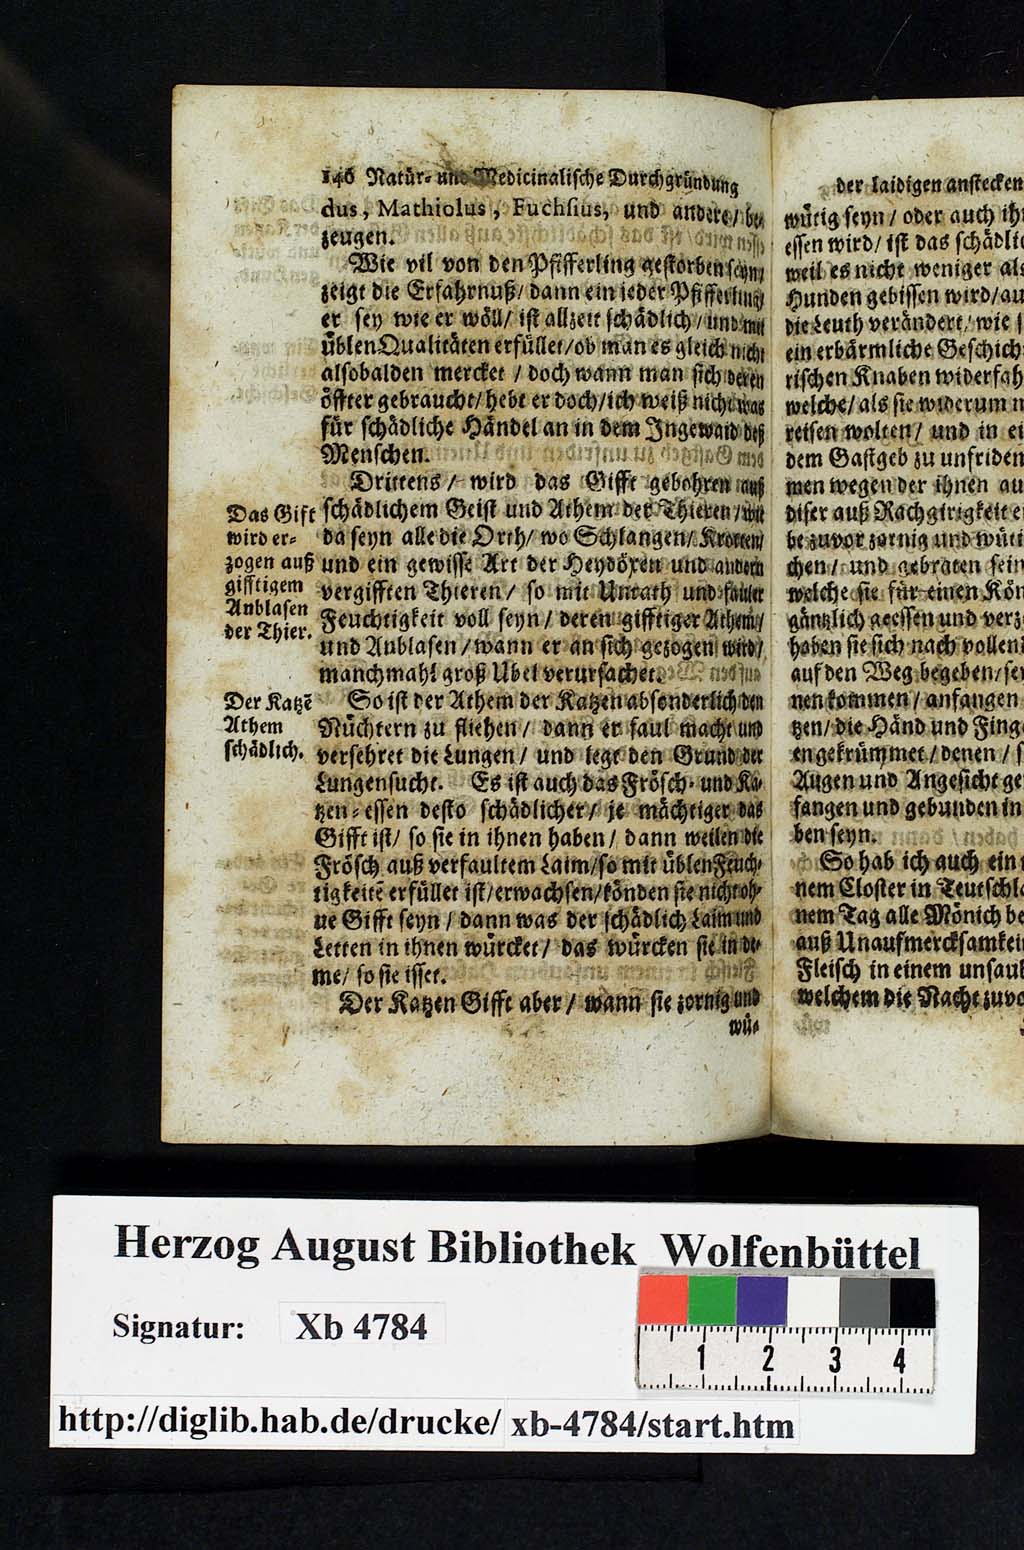 146 Natür- und Medicinalische Durchgründung
dus, Mathiolus, Fuchsius, und andere / be-
zeugen.
Wie vil von den Pfifferling gestorben seyn /
zeigt die Erfahrnuß / dann ein ieder Pfifferling /
er sey wie er wöll / ist allzeit schädlich / und mit
üblen Qualitäten erfüllet / ob man es gleich nicht
alsobalden mercket / doch wann man sich deren
öffter gebraucht / hebt er doch / ich weiß nicht was
für schädliche Händel an in dem Ingewaid deß
Menschen.
Drittens / wird das Gifft gebohren auß
schädlichem Geist und Athem der Thieren / wie
da seyn alle die Orth / wo Schlangen / Krotten /
und ein gewisse Art der Heydöxen und andern
vergifften Thieren / so mit Unrath und fauler
Feuchtigkeit voll seyn / deren gifftiger Athem /
und Anblasen / wann er an sich gezogen wird /
manchmahl groß Ubel verursachet.
Das Gift
wird er-
zogen auß
gifftigem
Anblasen
der Thier.
So ist der Athem der Katzen absonderlich den
Nüchtern zu fliehen / dann er faul macht und
versehret die Lungen / und legt den Grund der
Lungensucht. Es ist auch das Frösch- und Ka-
tzen-essen desto schädlicher / je mächtiger das
Gifft ist / so sie in ihnen haben / dann weilen die
Frösch auß verfaultem Laim / so mit üblen Feuch-
tigkeitē erfüllet ist / erwachsen / könden sie nicht oh-
ne Gifft seyn / dann was der schädlich Laim und
Letten in ihnen würcket / das würcken sie in de-
me / so sie isset.
Der Katzē
Athem
schädlich.
Der Katzen Gifft aber / wann sie zornig und
wü-
der laidigen anstecken
wütig seyn / oder auch ih
essen wird / ist das schädlic
weil es nicht weniger als
Hunden gebissen wird / au
die Leuth verändert / wie s
ein erbärmliche Geschich
rischen Knaben widerfah
welche / als sie widerum n
reisen wolten / und in ei
dem Gastgeb zu unfriden
men wegen der ihnen au
diser auß Rachgirigkeit e
be zuvor zornig und wüti
chen / und gebraten sein
welche sie für einen Kön
gäntzlich geessen und verz
haben sie sich nach vollen
auf den Weg begeben / sey
nen kommen / anfangen
tzen / die Händ und Finge
en gekrümmet / denen / s
Augen und Angesicht ge
fangen und gebunden in
ben seyn.
So hab ich auch ein
nem Closter in Teutschla
nem Tag alle Mönich be
auß Unaufmercksamkei
Fleisch in einem unsaub
welchem die Nacht zuvo
Herzog August Bibliothek Wolfenbüttel
Signatur: Xb 4784
1 2 3 4
http://diglib.hab.de/drucke/ xb-4784/start.htm